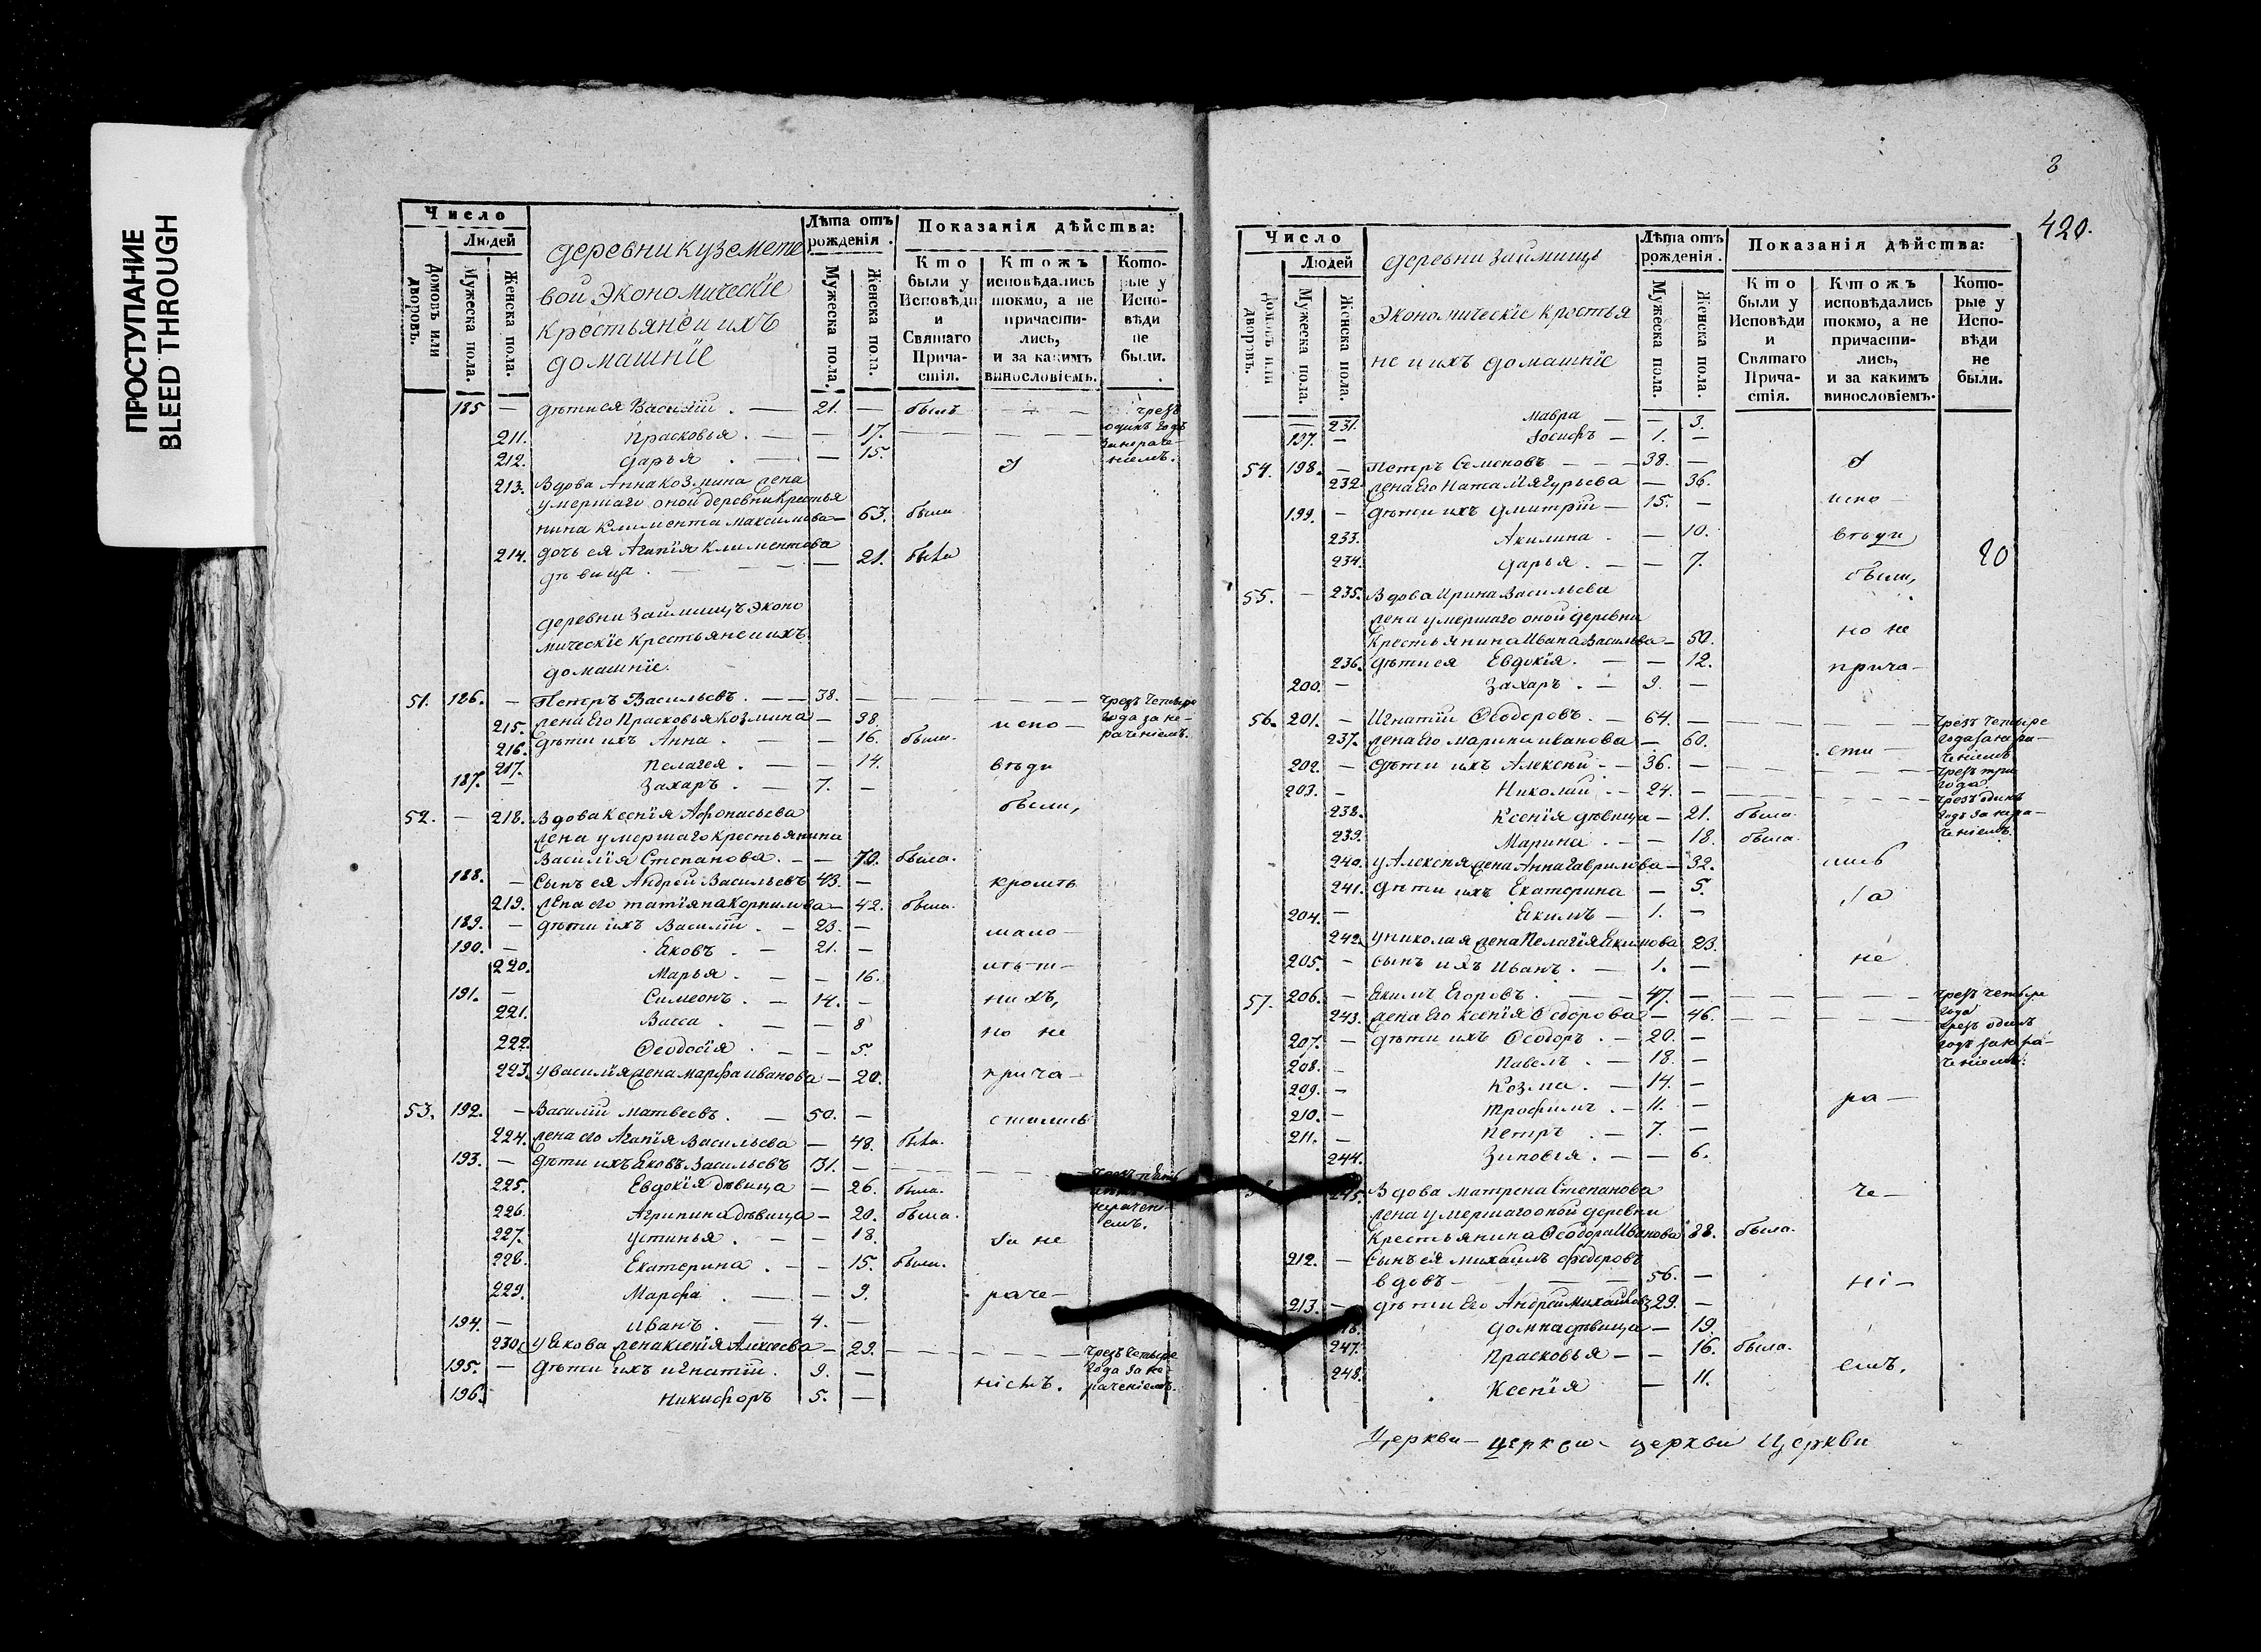 ПРОСТУПАНИЕ
BLEED THROUGH
Число
Людей
Домовъ или дворовъ.
Мужеска пола.
Женска пола.
деревни куземете
вой Экономическїе
крестьяне и ихъ
домашнїе
Лѣта отъ рожденія.
Мужеска пола.
Женска пола.
Показанія дѣйства:
Кто были у Исповѣди и Святаго Причастія.
Ктожъ исповѣдались токмо, а не причастились, и за какимъ винословіемъ.
Которые у Исповѣди не были.
185 — дѣти ея Василїи . — 21. — былъ — — чрезъ
211. Прасковья . — — 17. — — — одинъ годъ
212. Дарья . — — 15. нїемъ.
213. Вдова Анна козмина жена
умершаго оной деревни Крестья
нина Климента Максимова — 63. была
214. дочь ея Агапїя Климентова
дѣвица . — — — 21. была
деревни Займищъ эконо
мическїе крестьяне и ихъ
домашнїе.
51. 186. — Петръ Васильевъ . — — 38. — — — — чрезъ четыре
215. жена Его Прасковья Козмина — 38. испо — года за не-
216. дѣти ихъ Анна . — — 16. была. раченїемъ.
217. Пелагея . — — 14. вѣди
187. — Захаръ . — 7. —
были,
52. — 218. Вдова Ксенїя Афонасьева
жена умершаго крестьянина
Василїя Степанова . — — 70. была.
188. — Сынъ ея Андрей Васильевъ 43. — кромѣ
219. жена его татїяна Корнилова — 42. была.
189. — дѣти ихъ Василїи . — 23. — мало —
190. — Яковъ . — 21. —
220. Марья . — — 16. лѣт —
191. — Симеонъ . — 14. — нихъ,
221. Васса . — — 8 но не
222. Ѳеодосїя . — — 5.
223. у Василїя жена Марфа иванова — 20. прича —
53. 192. — Василїи Матвеевъ . — 50. — стились
224. жена его Агапїя Васильева — 48. была.
193. — дѣти ихъ Яковъ Васильевъ 31. — — —
225. Евдокїя дѣвица — 26. была.
226. Агрипина дѣвица — 20. была.
227. Устинья . — — 18. за не
228. Екатерина . — — 15. была.
229. Марфа . — — 9. раче —
194. — Иванъ . — 4. —
230. у Якова жена Ксенїя Алексеева — 29. — — — чрезъ четыре
195. — дѣти ихъ игнатїи . 9. — года за не-
196. Никифоръ 5. — нїемъ. раченїемъ.
8
420.
Число
Людей
Домовъ или дворовъ.
Мужеска пола.
Женска пола.
деревни Займищъ
Экономическїе крестья
не и ихъ домашнїе
Лѣта отъ рожденія.
Мужеска пола.
Женска пола.
Показанія дѣйства:
Кто были у Исповѣди и Святаго Причастія.
Ктожъ исповѣдались токмо, а не причастились, и за какимъ винословіемъ.
Которые у Исповѣди не были.
— 231. Мавра — — 3.
197. — Іосифъ — 1. —
54. 198. — Петръ Семеновъ — — 38. —
232. жена Его Наталїя Гурьева — 36.
199. — дѣти ихъ Дмитрїи — 15. — испо —
233. Акилина . — 10. вѣди
234. Дарья . — — 7. 20
были,
55. — 235. Вдова Ирина Васильева
жена умершаго оной деревни
крестьянина Ивана Васильева — 50. но не
236. дѣти ея Евдокїя . — — 12. прича —
200. — Захаръ . — 9. —
56. 201. — Игнатїи Ѳеодоровъ . — 64. — — — — чрезъ четыре
237. жена Его Марина иванова — 60. сти — года за нера-
202. — дѣти ихъ Алексѣи — — 36. — — — — ченїемъ
чрезъ три
203. — Николаи . — 24. — — — — года.
чрезъ одинъ
238. Ксенїя дѣвица — 21. была годъ за нера-
239. Марина . — — 18. была. ченїемъ.
240. у Алексея жена Анна Гаврилова — 32. лись
241. дѣти ихъ Екатерина — 5. за
204. — Якимъ — 1. —
242. у николая жена Пелагїя Якимова 23.
205. — сынъ ихъ Иванъ . — 1. — не
57. 206. — Якимъ Егоровъ . — — 47. — — — — чрезъ четыре
243. жена Его Ксенїя Ѳеодорова — 46. — — — года
207. — дѣти ихъ Ѳеодоръ . — 20. — чрезъ одинъ
208. — Павелъ . — 18. — годъ за нера-
209. — Козма . — 14. — ченїемъ.
210. — Трофимъ . — 11. — ра —
211. — Петръ . — 7. —
244. Зиновїя . — — 6.
245. Вдова Матрена Степанова че —
жена умершаго оной деревни
Крестьянина Ѳеодора Иванова 88. была.
212. — Сынъ ея михаилъ федоровъ
вдовъ — — — 56. — нї —
213. — дѣти Его Андрей Михайловъ 29. —
домна дѣвица — 19.
247. Прасковья — — 16. была.
248. Ксенїя — 11. емъ.
Церкви — церкви — церкви Церкви